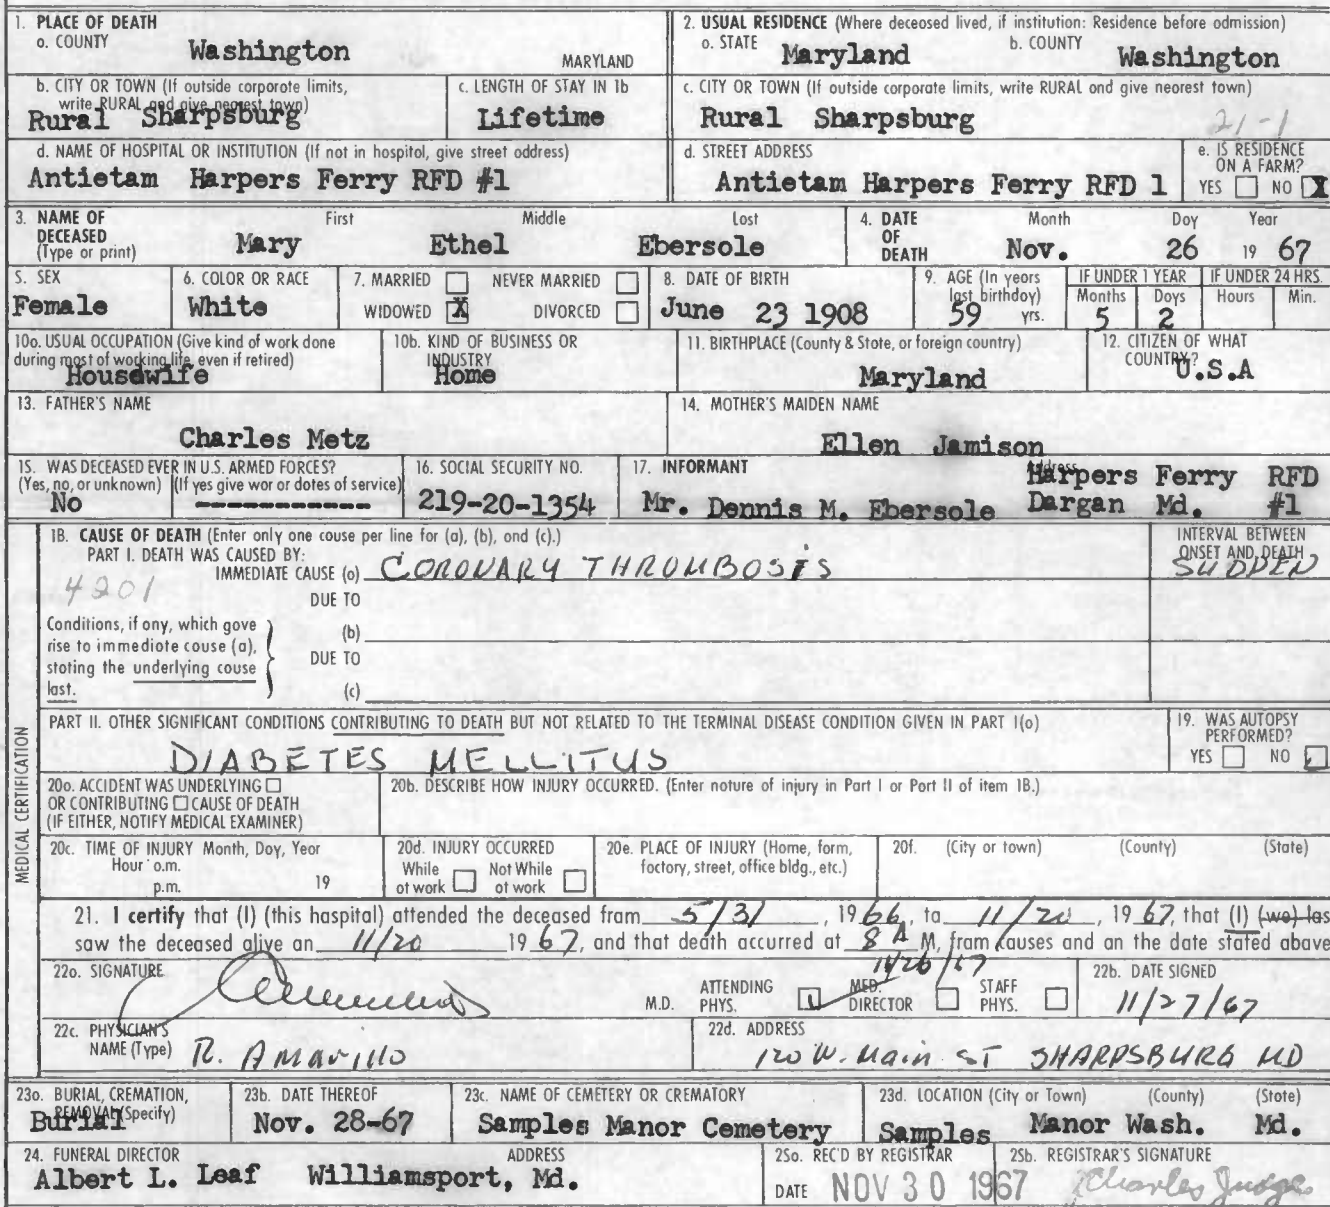 1. PLACE OF DEATH
a. COUNTY
Washington
MARYLAND
2. USUAL RESIDENCE (Where deceased lived, if institution: Residence before admission)
a. STATE Maryland b. COUNTY Washington
b. CITY OR TOWN (If outside corporate limits, write RURAL and give nearest town)
Rural Sharpsburg
c. LENGTH OF STAY IN 1b
Lifetime
c. CITY OR TOWN (If outside corporate limits, write RURAL and give nearest town)
Rural Sharpsburg
21-1
d. NAME OF HOSPITAL OR INSTITUTION (If not in hospital, give street address)
Antietam Harpers Ferry RFD #1
d. STREET ADDRESS
Antietam Harpers Ferry RFD 1
e. IS RESIDENCE ON A FARM?
YES NO X
3. NAME OF DECEASED (Type or print)
First Middle Last
Mary Ethel Ebersole
4. DATE OF DEATH
Month Day Year
Nov. 26 19 67
5. SEX
Female
6. COLOR OR RACE
White
7. MARRIED NEVER MARRIED
WIDOWED X DIVORCED
8. DATE OF BIRTH
June 23 1908
9. AGE (In years last birthday)
59 yrs.
IF UNDER 1 YEAR
Months Days
5 2
IF UNDER 24 HRS.
Hours Min.
10a. USUAL OCCUPATION (Give kind of work done during most of working life, even if retired)
Housewife
10b. KIND OF BUSINESS OR INDUSTRY
Home
11. BIRTHPLACE (County & State, or foreign country)
Maryland
12. CITIZEN OF WHAT COUNTRY?
U.S.A
13. FATHER'S NAME
Charles Metz
14. MOTHER'S MAIDEN NAME
Ellen Jamison
15. WAS DECEASED EVER IN U.S. ARMED FORCES?
(Yes, no, or unknown) (If yes give war or dates of service)
No -----------
16. SOCIAL SECURITY NO.
219-20-1354
17. INFORMANT
Mr. Dennis M. Ebersole
Address
Harpers Ferry RFD
Dargan Md. #1
18. CAUSE OF DEATH (Enter only one cause per line for (a), (b), and (c).)
PART I. DEATH WAS CAUSED BY:
IMMEDIATE CAUSE (a) CORONARY THROMBOSIS
INTERVAL BETWEEN ONSET AND DEATH
SUDDEN
4201
DUE TO
Conditions, if any, which gave rise to immediate cause (a), stating the underlying cause last.
(b)
DUE TO
(c)
PART II. OTHER SIGNIFICANT CONDITIONS CONTRIBUTING TO DEATH BUT NOT RELATED TO THE TERMINAL DISEASE CONDITION GIVEN IN PART I(a)
DIABETES MELLITUS
19. WAS AUTOPSY PERFORMED?
YES NO
MEDICAL CERTIFICATION
20a. ACCIDENT WAS UNDERLYING
OR CONTRIBUTING CAUSE OF DEATH
(IF EITHER, NOTIFY MEDICAL EXAMINER)
20b. DESCRIBE HOW INJURY OCCURRED. (Enter nature of injury in Part I or Part II of item 18.)
20c. TIME OF INJURY Month, Day, Year
Hour a.m.
p.m. 19
20d. INJURY OCCURRED
While at work Not While at work
20e. PLACE OF INJURY (Home, farm, factory, street, office bldg., etc.)
20f. (City or town) (County) (State)
21. I certify that (I) (this hospital) attended the deceased from 5/31, 1966, to 11/20, 1967, that (I) (we) las
saw the deceased alive on 11/20 1967, and that death occurred at 8 A M, from causes and on the date stated above
11/26/67
22a. SIGNATURE
M.D.
ATTENDING PHYS. MED. DIRECTOR STAFF PHYS.
22b. DATE SIGNED
11/27/67
22c. PHYSICIAN'S NAME (Type)
R. Amarillo
22d. ADDRESS
120 W. Main ST SHARPSBURG MD
23a. BURIAL, CREMATION, REMOVAL (Specify)
Burial
23b. DATE THEREOF
Nov. 28-67
23c. NAME OF CEMETERY OR CREMATORY
Samples Manor Cemetery
23d. LOCATION (City or Town) (County) (State)
Samples Manor Wash. Md.
24. FUNERAL DIRECTOR ADDRESS
Albert L. Leaf Williamsport, Md.
25a. REC'D BY REGISTRAR
DATE NOV 30 1967
25b. REGISTRAR'S SIGNATURE
Charles Judge